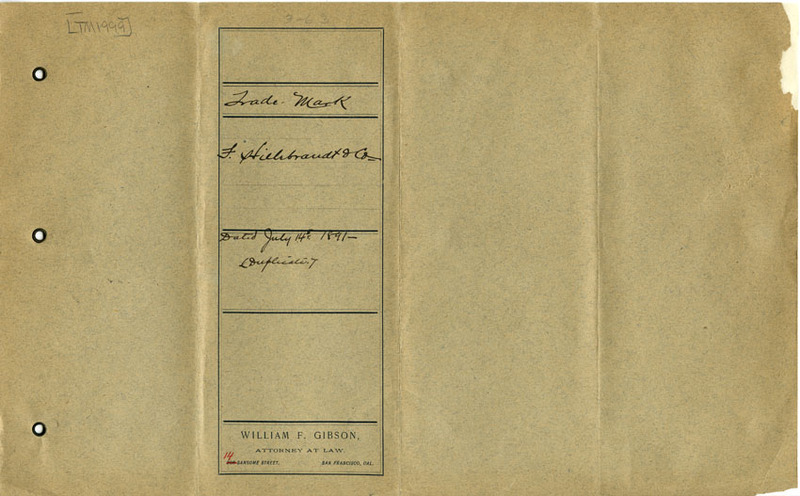 [TM1999]
3-63
Trade-Mark
F. Hillebrandt & Co
Dated July 14th 1891
(Duplicate)
WILLIAM F. GIBSON,
ATTORNEY AT LAW.
14 SANSOME STREET, SAN FRANCISCO, CAL.